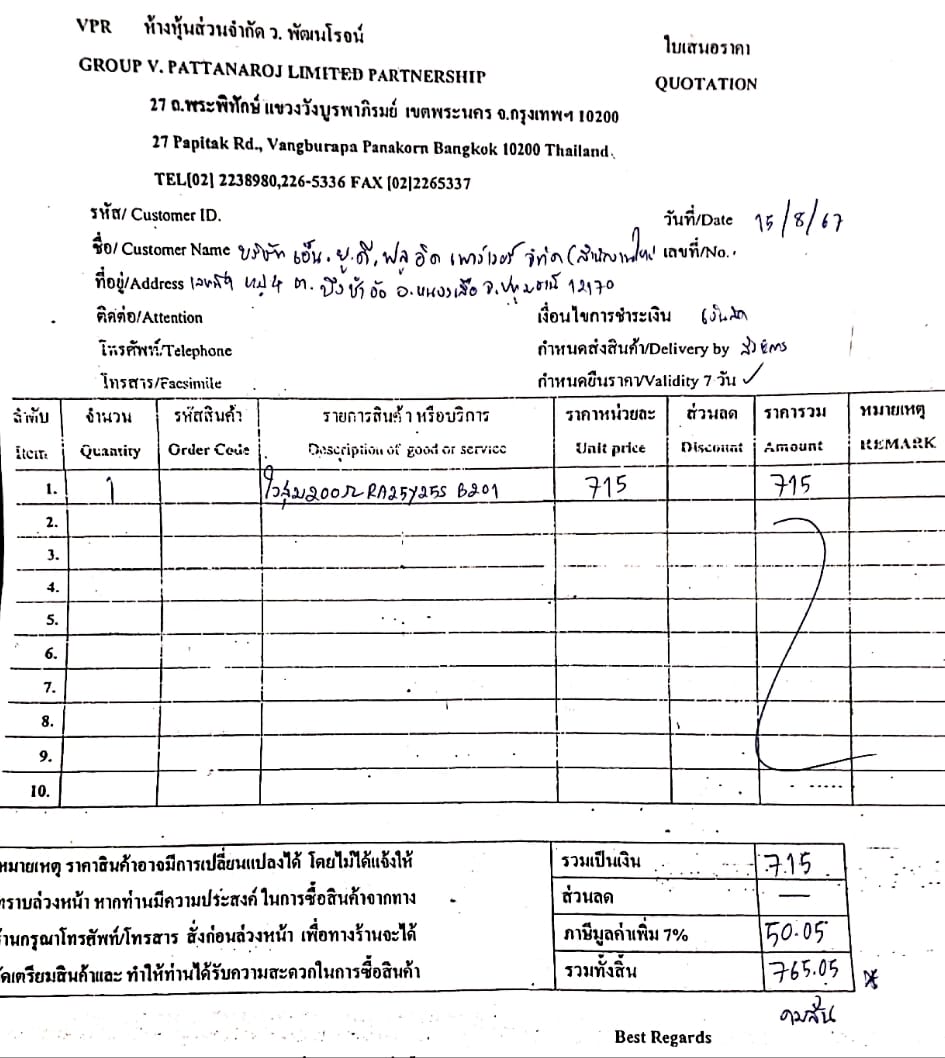 VPR ห้างหุ้นส่วนจำกัด ว. พัฒนโรจน์
ใบเสนอราคา
GROUP V. PATTANAROJ LIMITED PARTNERSHIP
QUOTATION
27 ถ.พระพิทักษ์ แขวงวังบูรพาภิรมย์ เขตพระนคร จ.กรุงเทพฯ 10200
27 Papitak Rd., Vangburapa Panakorn Bangkok 10200 Thailand.
TEL[02] 2238980,226-5336 FAX [02]2265337
รหัส/ Customer ID.
วันที่/Date 15/8/67
ชื่อ/ Customer Name บริษัท เอ็น.ยู.ดี. ฟลูอิด เพาร์เวอร์ จำกัด (สำนักงานใหญ่ เลขที่/No..
ที่อยู่/Address หมู่ 4 ต. บึงชำอ้อ อ.หนองเสือ จ.ปทุมธานี 12170
ติดต่อ/Attention
เงื่อนไขการชำระเงิน เงินสด
โทรศัพท์/Telephone
กำหนดส่งสินค้า/Delivery by
โทรสาร/Facsimile
กำหนดยืนราคา/Validity 7 วัน ✓
ลำดับ จำนวน รหัสสินค้า รายการสินค้า หรือบริการ ราคาหน่วยละ ส่วนลด ราคารวม หมายเหตุ
Item Quantity Order Code Description of good or service Unit price Discount Amount REMARK
1. 1 200Ω RA25Y25S B201 715 715
2.
3.
4.
5.
6.
7.
8.
9.
10.
หมายเหตุ ราคาสินค้าอาจมีการเปลี่ยนแปลงได้ โดยไม่ได้แจ้งให้
รวมเป็นเงิน 715
ทราบล่วงหน้า หากท่านมีความประสงค์ ในการซื้อสินค้าจากทาง
ส่วนลด —
ร้านกรุณาโทรศัพท์/โทรสาร สั่งก่อนล่วงหน้า เพื่อทางร้านจะได้
ภาษีมูลค่าเพิ่ม 7% 50.05
จัดเตรียมสินค้าและ ทำให้ท่านได้รับความสะดวกในการซื้อสินค้า
รวมทั้งสิ้น 765.05
คมสัน
Best Regards